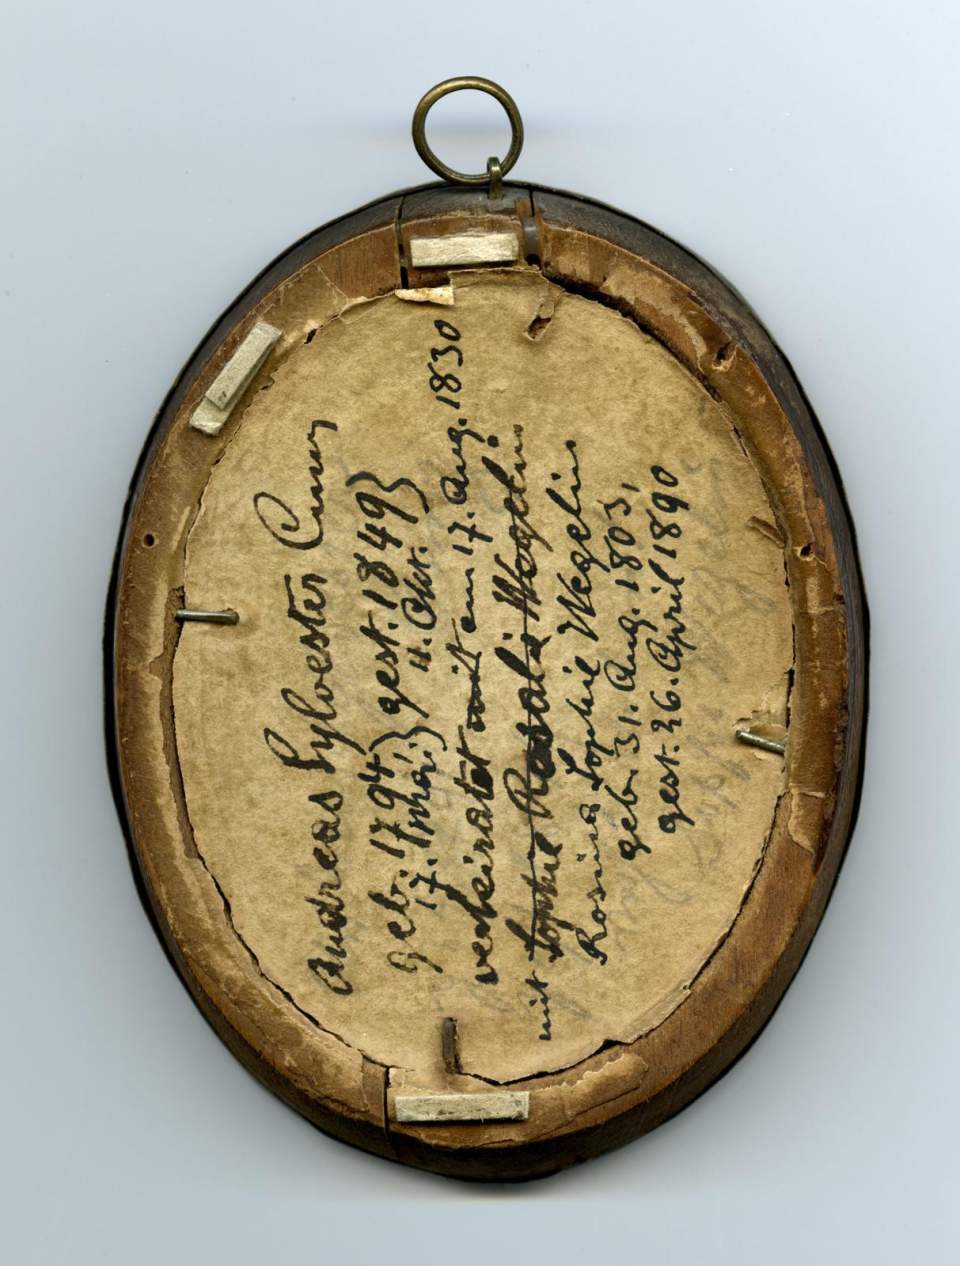 Andreas Sylvester Cunz
geb. 1794 } gest. 1849 }
17. Inhar. } 4. Okt. }
verheiratet mit am 17. Aug. 1830
mit Sophie Rosali Wegelin
Rosina Sophie Wegelin
geb. 31. Aug. 1803,
gest. 26. April 1890